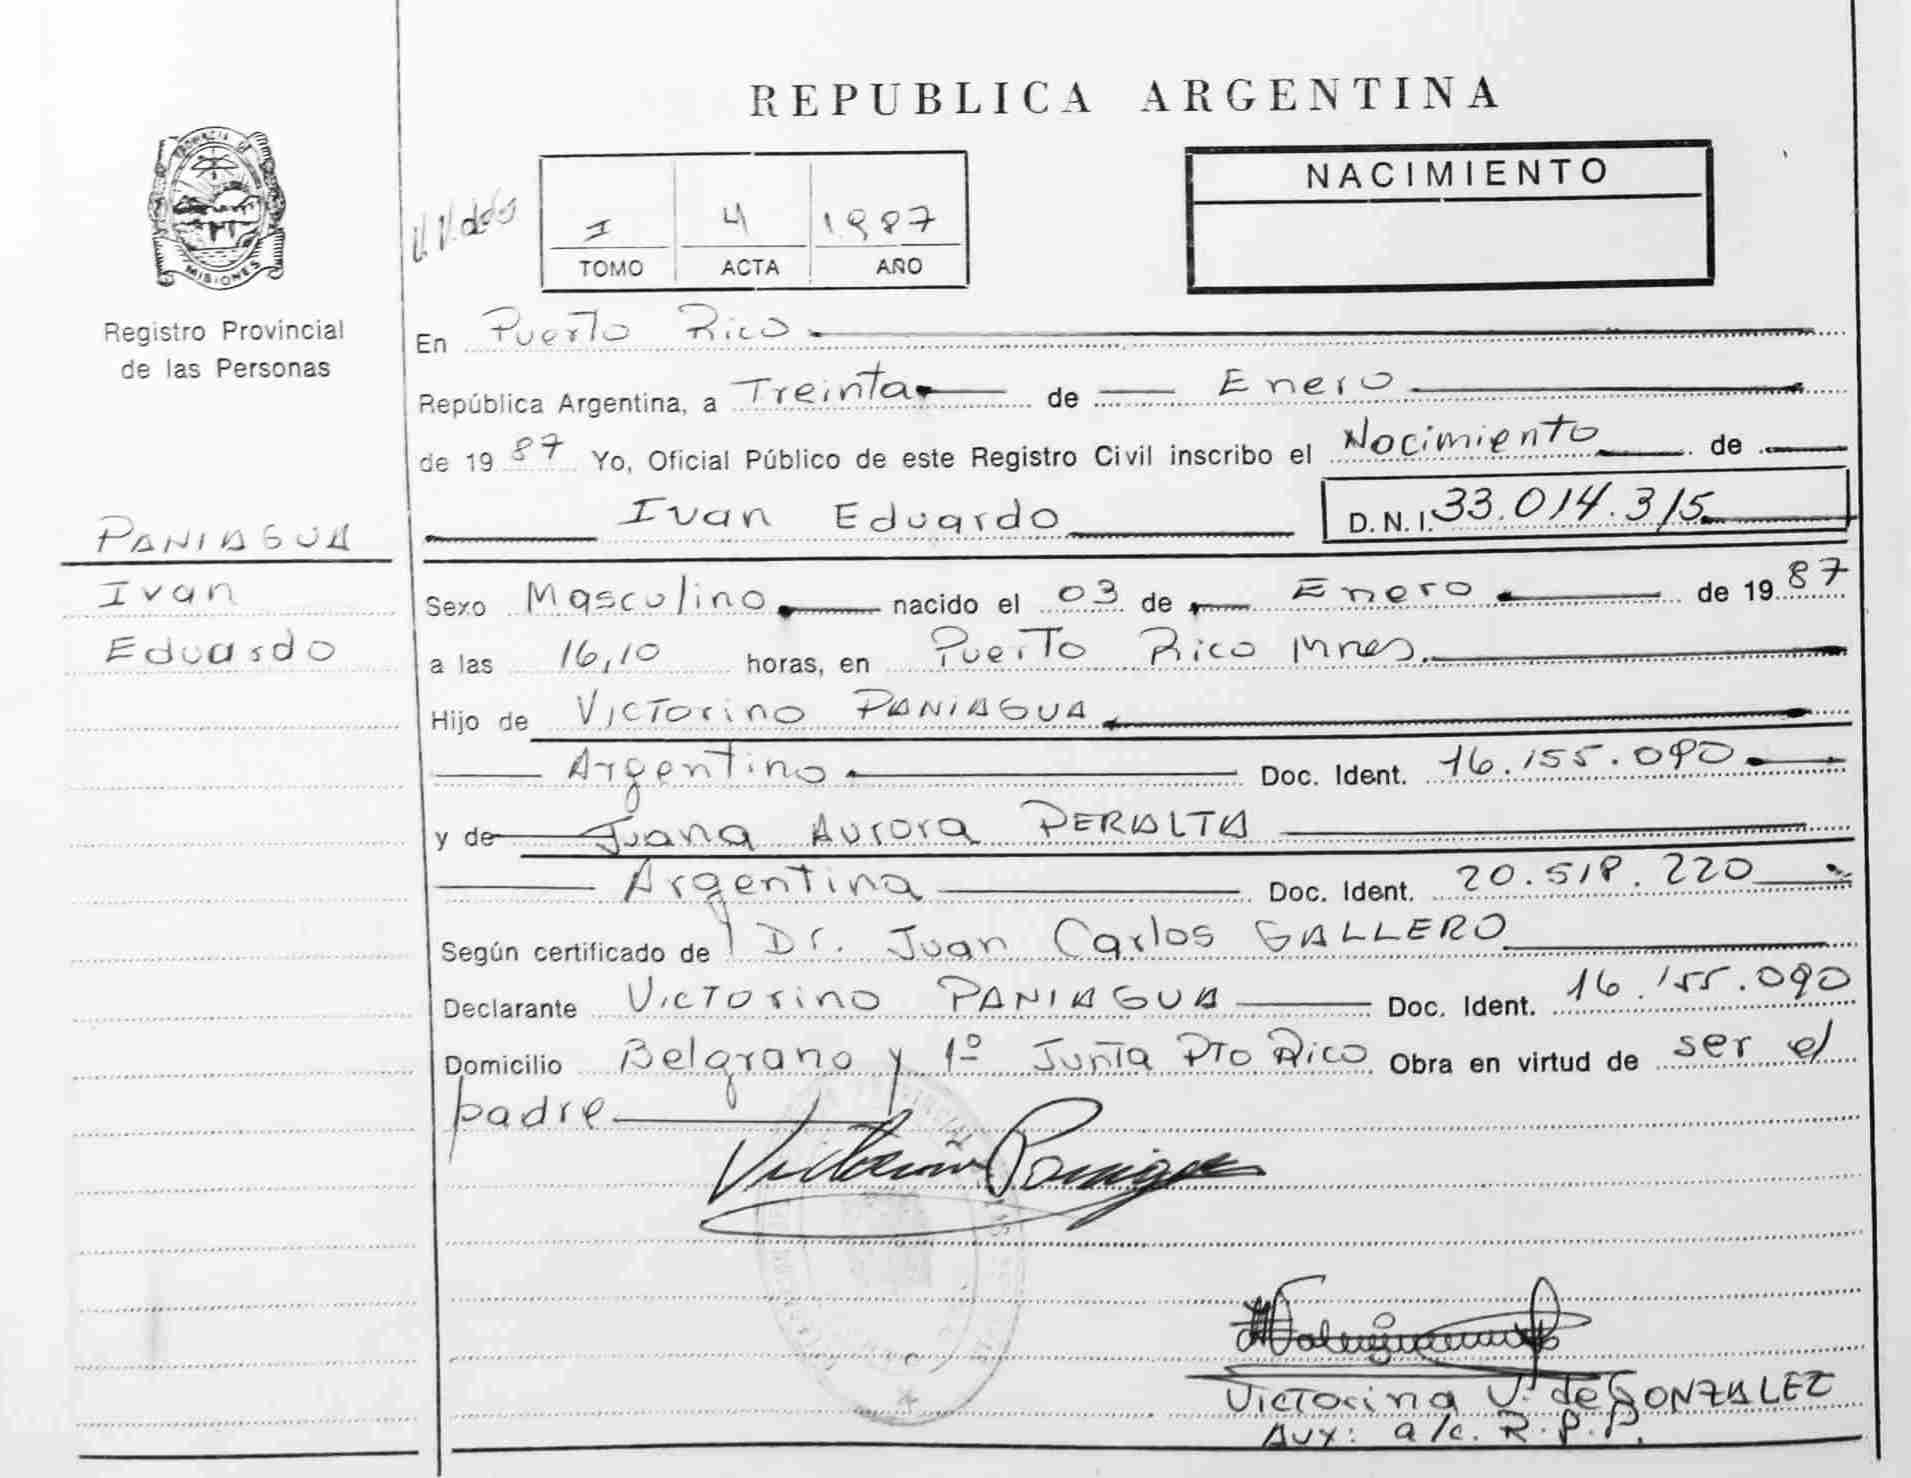 REPUBLICA ARGENTINA
PROVINCIA DE
MISIONES
Registro Provincial
de las Personas
PANIAGUA
Ivan
Eduardo
I 4 1.987
TOMO ACTA AÑO
NACIMIENTO
En Puerto Rico
República Argentina, a Treinta de Enero
de 19 87 Yo, Oficial Público de este Registro Civil inscribo el Nacimiento de
Ivan Eduardo D.N.I. 33.014.315
Sexo Masculino nacido el 03 de Enero de 19 87
a las 16,10 horas, en Puerto Rico Mnes.
Hijo de Victorino PANIAGUA
Argentino Doc. Ident. 16.155.090
y de Juana Aurora PERALTA
Argentina Doc. Ident. 20.518.220
Según certificado de Dr. Juan Carlos GALLERO
Declarante Victorino PANIAGUA Doc. Ident. 16.155.090
Domicilio Belgrano y 1º Junta Pto Rico Obra en virtud de ser el
padre
Victorino Paniagua
Victorina V. de GONZALEZ
Aux: a/c. R.P.P.